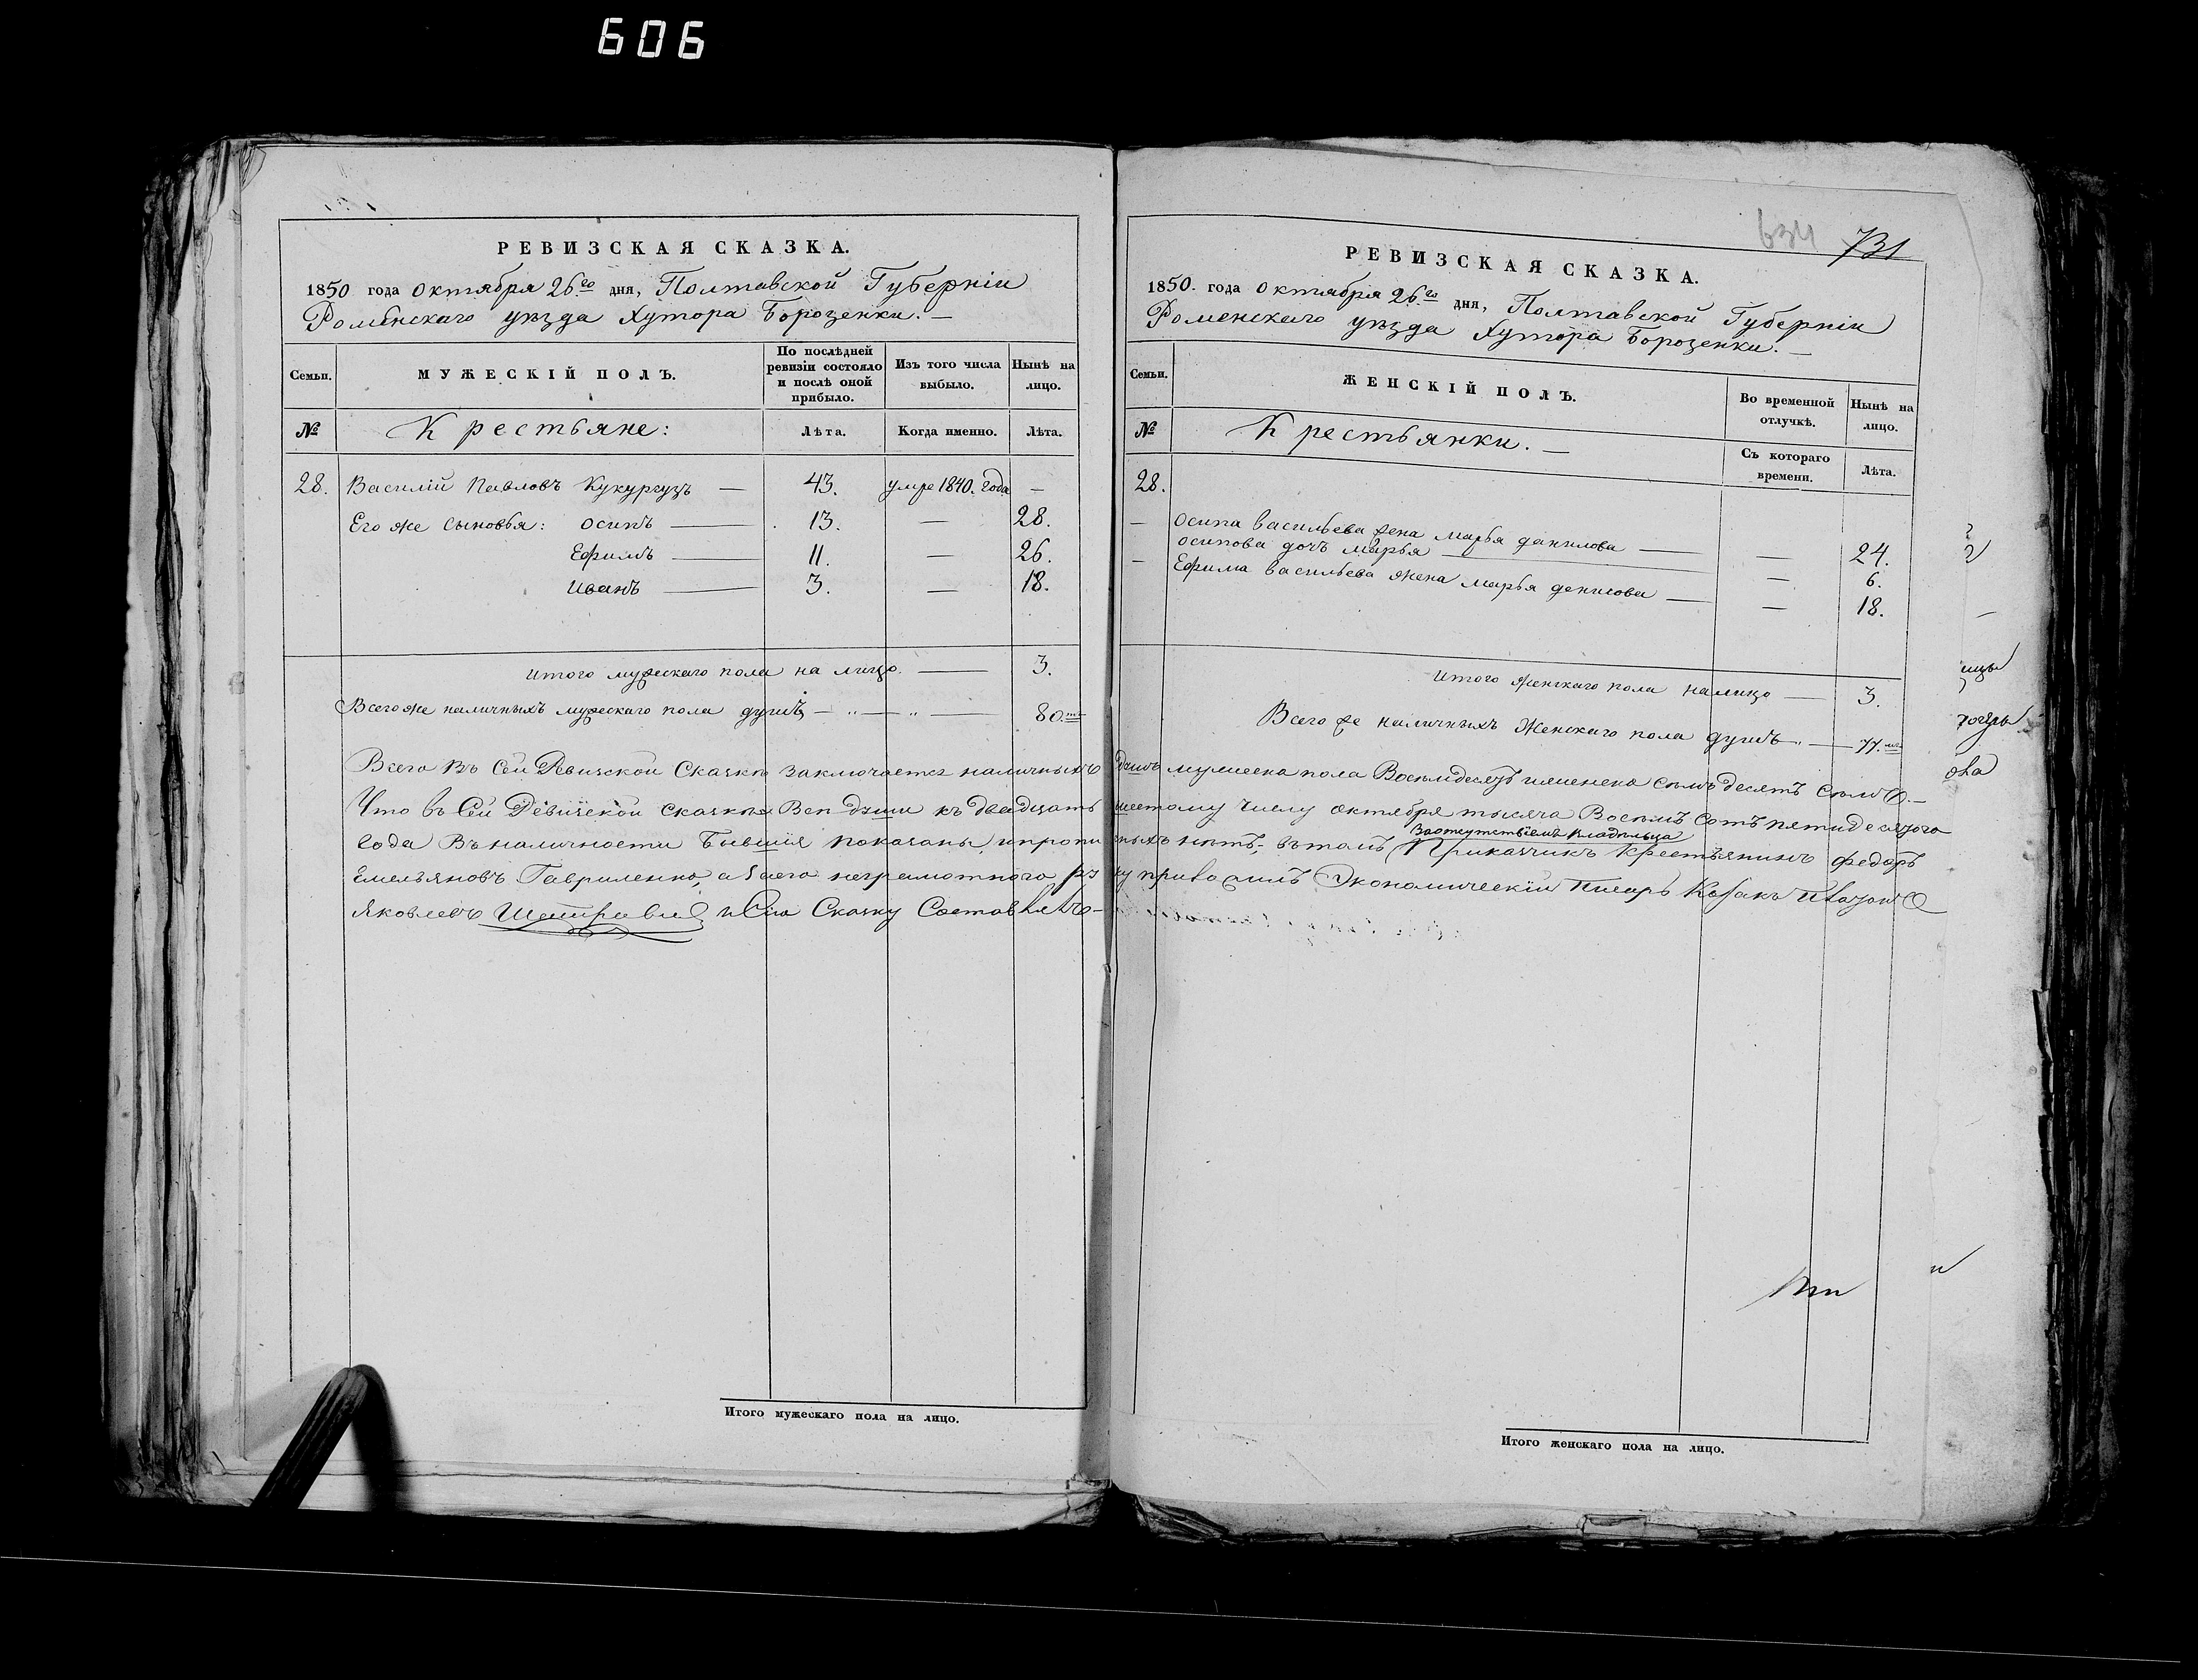 606
РЕВИЗСКАЯ СКАЗКА.
1850 года октября 26го дня, Полтавской Губерніи
Роменскаго уѣзда Хутора Борозенки. —
Семьи.
МУЖЕСКІЙ ПОЛЪ.
По послѣдней ревизіи состояло и послѣ оной прибыло.
Изъ того числа выбыло.
Нынѣ на лицо.
№
Крестьяне:
Лѣта.
Когда именно.
Лѣта.
28. Василій Павловъ Кукургузъ — 43. умре 1840. года —
Его же сыновья: Осипъ — 13. — 28.
Ефимъ — 11. — 26.
Иванъ — 3. — 18.
Итого мужескаго пола на лицо. — 3.
Всего же наличныхъ мужескаго пола душъ — 80.ть
634 731
РЕВИЗСКАЯ СКАЗКА.
1850. года октября 26.го дня, Полтавской Губерніи
Роменскаго уѣзда Хутора Борозенки. —
Семьи.
ЖЕНСКІЙ ПОЛЪ.
Во временной отлучкѣ.
Нынѣ на лицо.
№
Крестьянки. —
Съ котораго времени.
Лѣта.
28.
— Осипа Васильева жена Марья Данилова — — 24.
Осипова дочь Марья — — 6.
— Ефима Васильева жена Марья Денисова — — 18.
Итого женскаго пола налицо — 3.
Всего же наличныхъ Женскаго пола душъ — 77.мь
Всего въ Сей Ревизской Сказкѣ заключается наличныхъ душъ мужеска пола Восемьдесятъ иженска семьдесятъ семь. —
Что въ Сей Ревизской сказкѣ Всѣ души къ двадцать шестому числу октября тысяча Восемь Сотъ пятидесятого
заотсутствіемъ владѣльца
года Въ наличности Бывшія показаны, ипрописныхъ нѣтъ, вътомъ Приказчикъ Крестьянинъ Федоръ
Емельяновъ Гавриленко, а за его неграмотного руку приложилъ Экономическій Писарь Козакъ
Яковлевъ и Сію Сказку Составлялъ —
Итого мужескаго пола на лицо.
Итого женскаго пола на лицо.